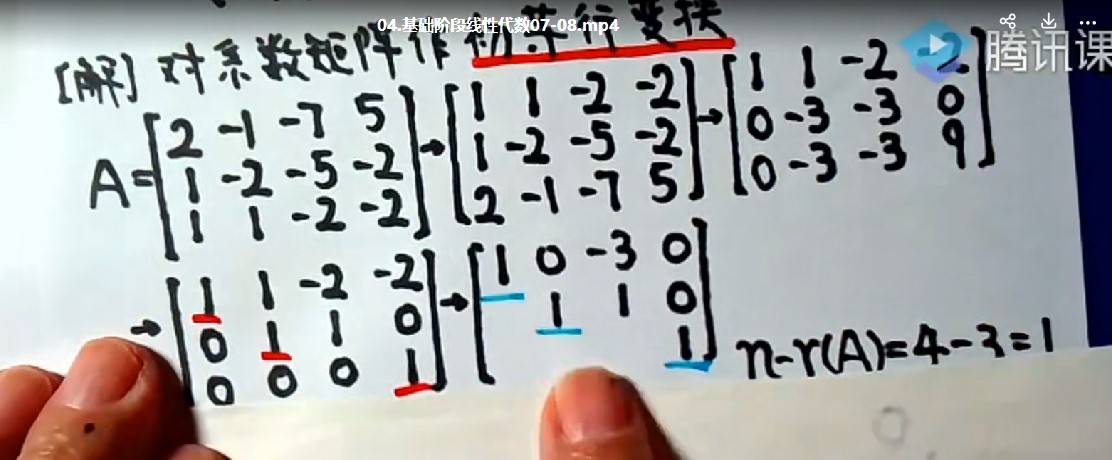 04.基础阶段线性代数07-08.mp4
腾讯课
[解] 对系数矩阵作初等行变换
A= [2 -1 -7 5; 1 -2 -5 -2; 1 1 -2 -2] → [1 1 -2 -2; 1 -2 -5 -2; 2 -1 -7 5] → [1 1 -2 -2; 0 -3 -3 0; 0 -3 -3 9]
→ [1 1 -2 -2; 0 1 1 0; 0 0 0 1] → [1 0 -3 0; 1 1 0; 1] n-r(A)=4-3=1